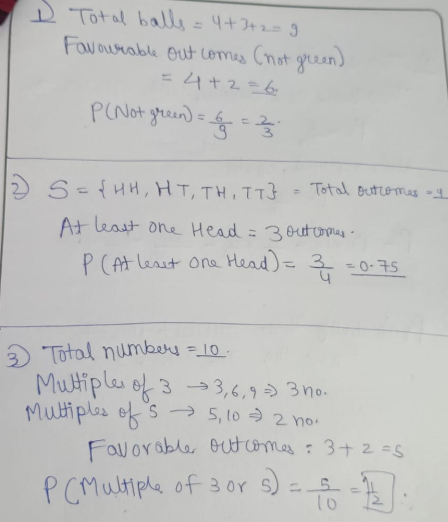 1) Total balls = 4+3+2 = 9
Favourable outcomes (not green)
= 4 + 2 = 6.
P(Not green) = 6/9 = 2/3.
2) S = {HH, HT, TH, TT} = Total outcomes = 4
At least one Head = 3 outcomes.
P (At least one Head) = 3/4 = 0.75
3) Total numbers = 10.
Multiples of 3 → 3,6,9 ⇒ 3 no.
Multiples of 5 → 5,10 ⇒ 2 no.
Favorable outcomes : 3 + 2 = 5
P (Multiple of 3 or 5) = 5/10 = 1/2.